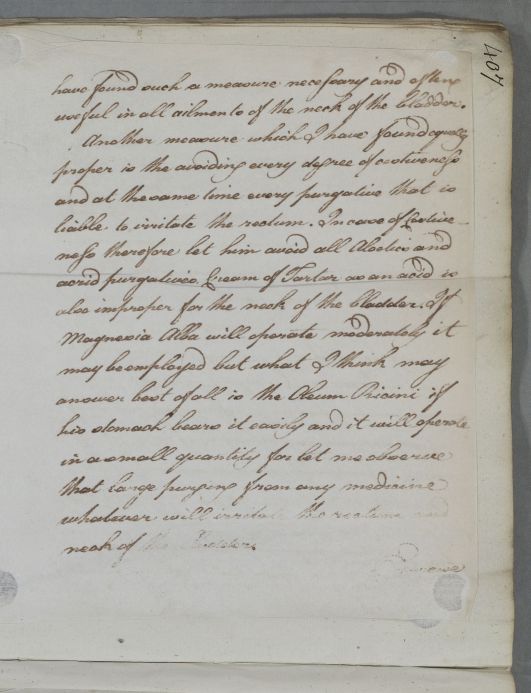 407
have found such a measure necessary and often
useful in all ailments of the neck of the bladder.
Another measure which I have found equally
proper is the avoiding every degree of costiveness
and at the same time every purgative that is
liable to irritate the rectum. In case of Costive-
ness therefore let him avoid all Aloetics and
acrid purgatives. Cream of Tartar as an acid is
also improper for the neck of the bladder. If
Magnesia Alba will operate moderately it
may be employed but what I think may
answer best of all is the Oleum Ricini if
his stomach bears it easily and it will operate
in a small quantity for let me observe
that large purging from any medicine
whatever will irritate the rectum and
neck of the bladder.